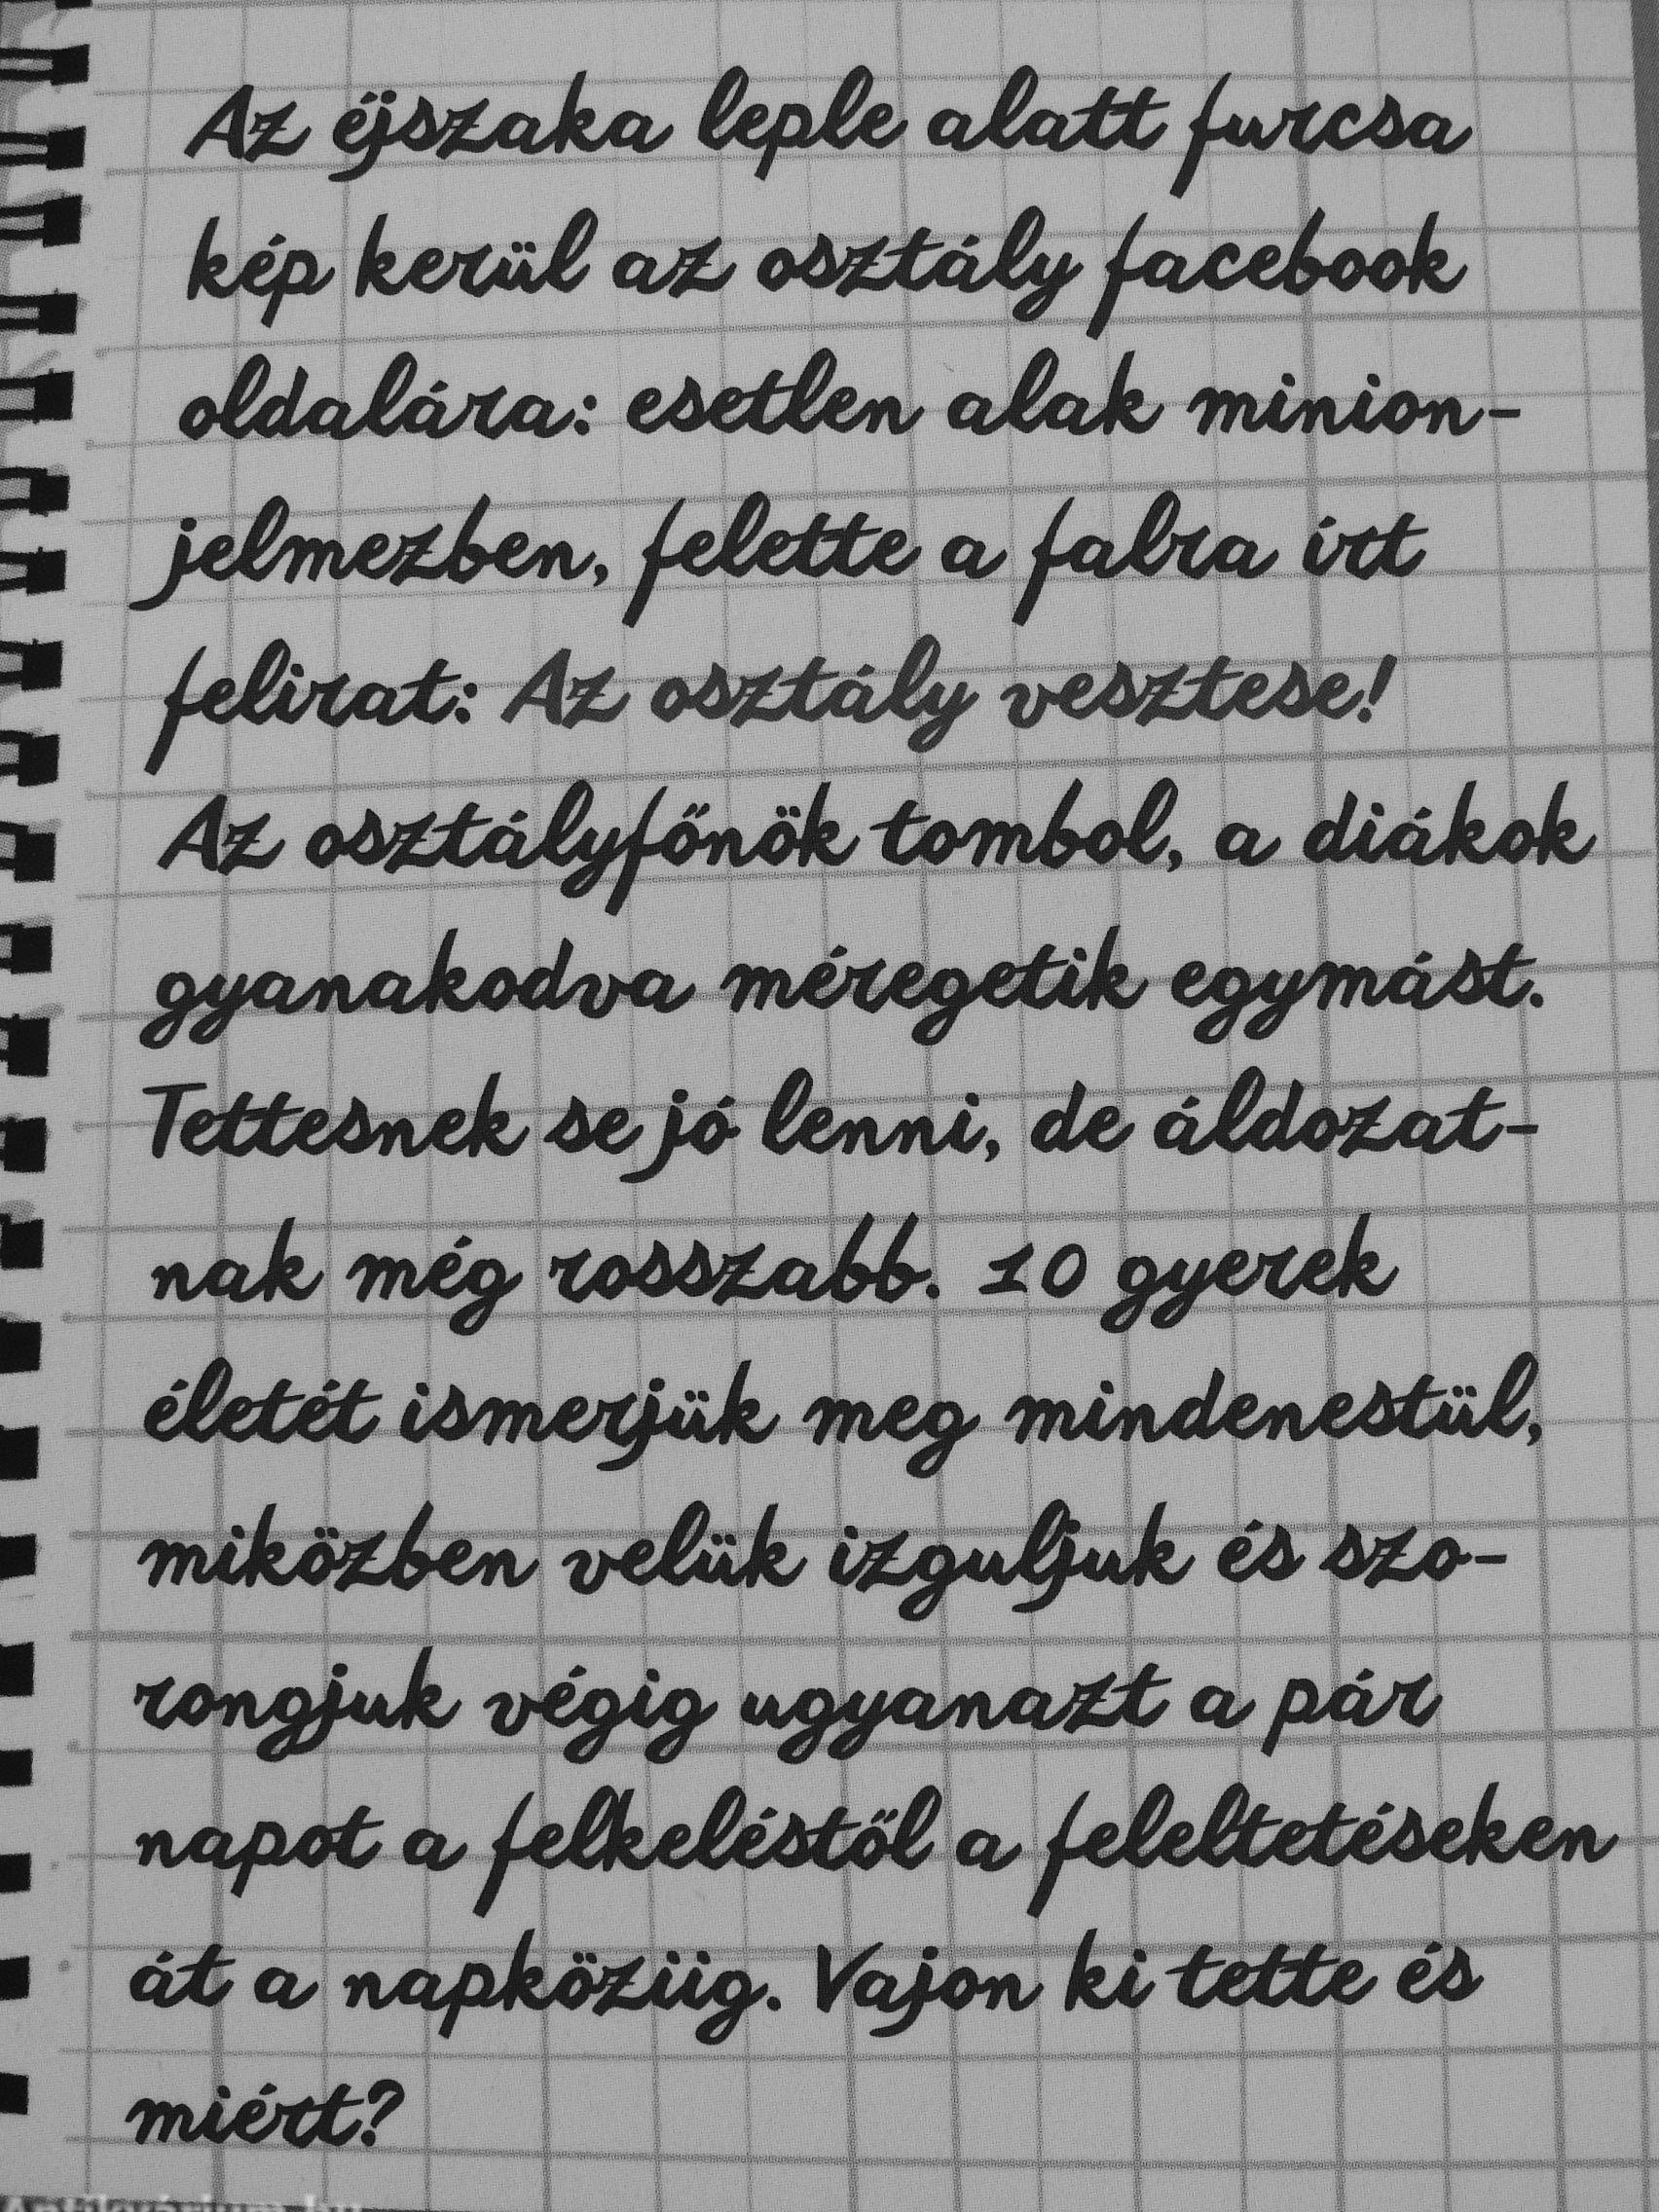 Az éjszaka leple alatt furcsa
kép kerül az osztály facebook
oldalára: esetlen alak minion-
jelmezben, felette a falra írt
felirat: Az osztály vesztese!
Az osztályfőnök tombol, a diákok
gyanakodva méregetik egymást.
Tettesnek se jó lenni, de áldozat-
nak még rosszabb. 10 gyerek
életét ismerjük meg mindenestül,
miközben velük izguljuk és szo-
rongjuk végig ugyanazt a pár
napot a felkeléstől a feleltetéseken
át a napköziig. Vajon ki tette és
miért?